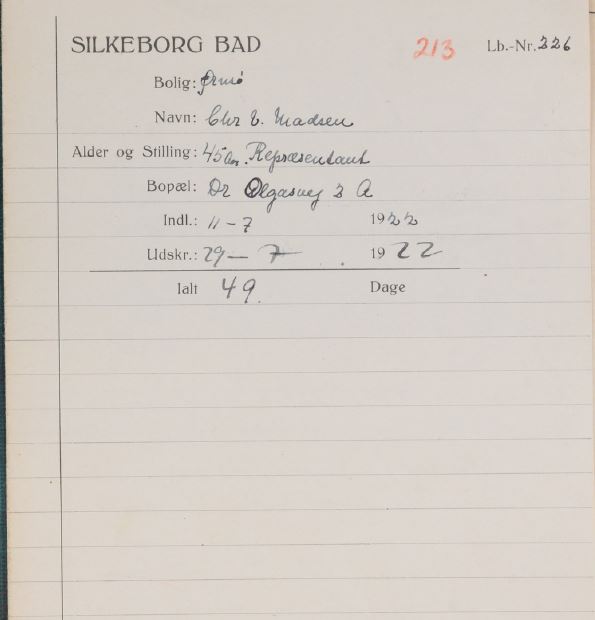 SILKEBORG BAD 213 Lb.-Nr. 226
Bolig: Ørnsö
Navn: Chr V. Madsen
Alder og Stilling: 45 Aar. Repræsentant
Bopæl: Dr Olgasvej 3 A
Indl.: 11-7 1922
Udskr.: 29-7 1922
Ialt 49. Dage